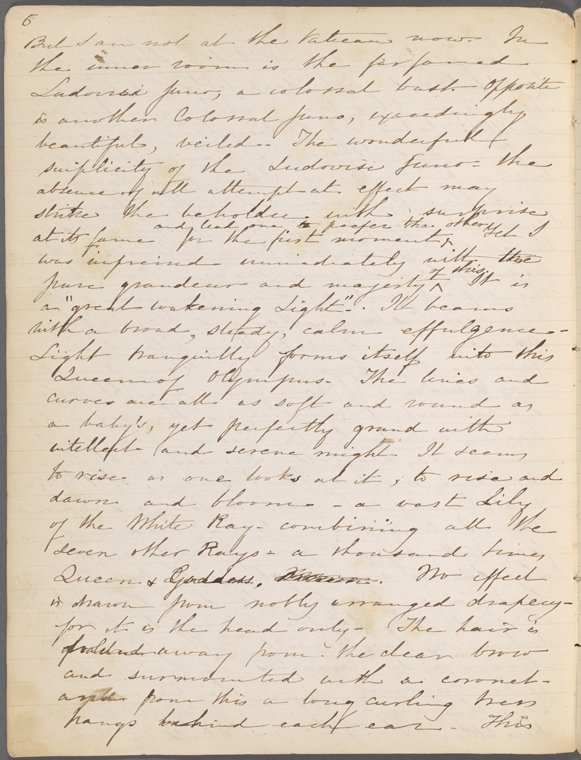 6
But I am not at the Vatican now. In
the inner room is the far famed
Ludovisi Juno, a colossal bust. Opposite
is another Colossal Juno, exceedingly
beautiful, veiled. The wonderful
simplicity of the Ludovisi Juno - the
absence of all attempt at effect may
strike the beholder with surprise
and lead one to prefer the other
at its fame for the first moment, Yet I
was impressed immediately with the
of this
pure grandeur and majesty ^ It is
a "great wakening Light". It beams
with a broad, steady, calm effulgence -
Light tranquilly forms itself into this
Queen of Olympus - The lines and
curves are all as soft and round as
a baby's, yet perfectly grand with
intellect and serene might It seems
to rise as one looks at it; to rise and
dawn and bloom - a vast Lily
of the White Ray - combining all the
seven other Rays - a thousand times
Queen & Goddess. No effect
is drawn from nobly arranged drapery -
for it is the head only - The hair is
away from the clear brow
and surmounted with a coronet -
from this a long curling tress
hangs behind each ear - This